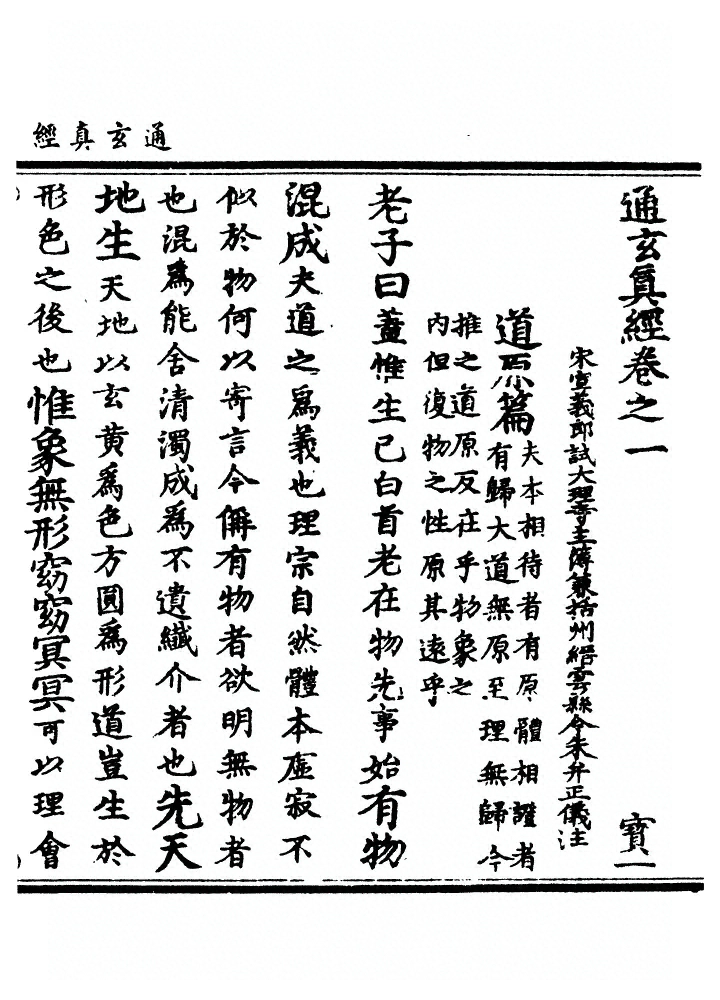 通玄真經
通玄眞經卷之一 寶一
宋宣義郎試大理寺主簿兼括州縉雲縣令朱弁正儀注
道原篇
夫本相待者有原體相讙者
有歸大道無原至理無歸今
推之道原反在乎物象之
內但復物之性原其遠乎
老子曰蓋惟生已白首老在物先事始有物
混成夫道之爲義也理宗自然體本虛寂不
似於物何以寄言今偁有物者欲明無物者
也混爲能舍清濁成爲不遺纖介者也先天
地生天地以玄黃爲色方圓爲形道豈生於
形色之後也惟象無形窈窈冥冥可以理會